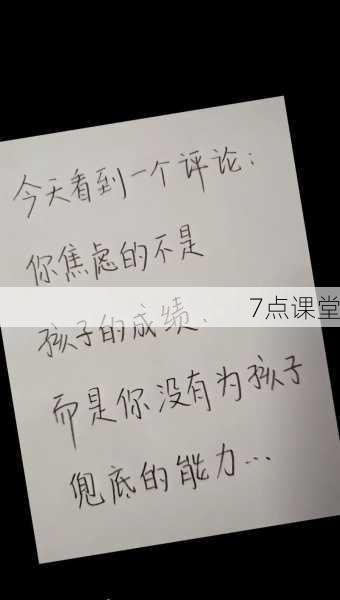 今天看到一个评论：
你焦虑的不是
7点课堂
孩子的成绩、
而是你没有为孩子
兜底的能力…